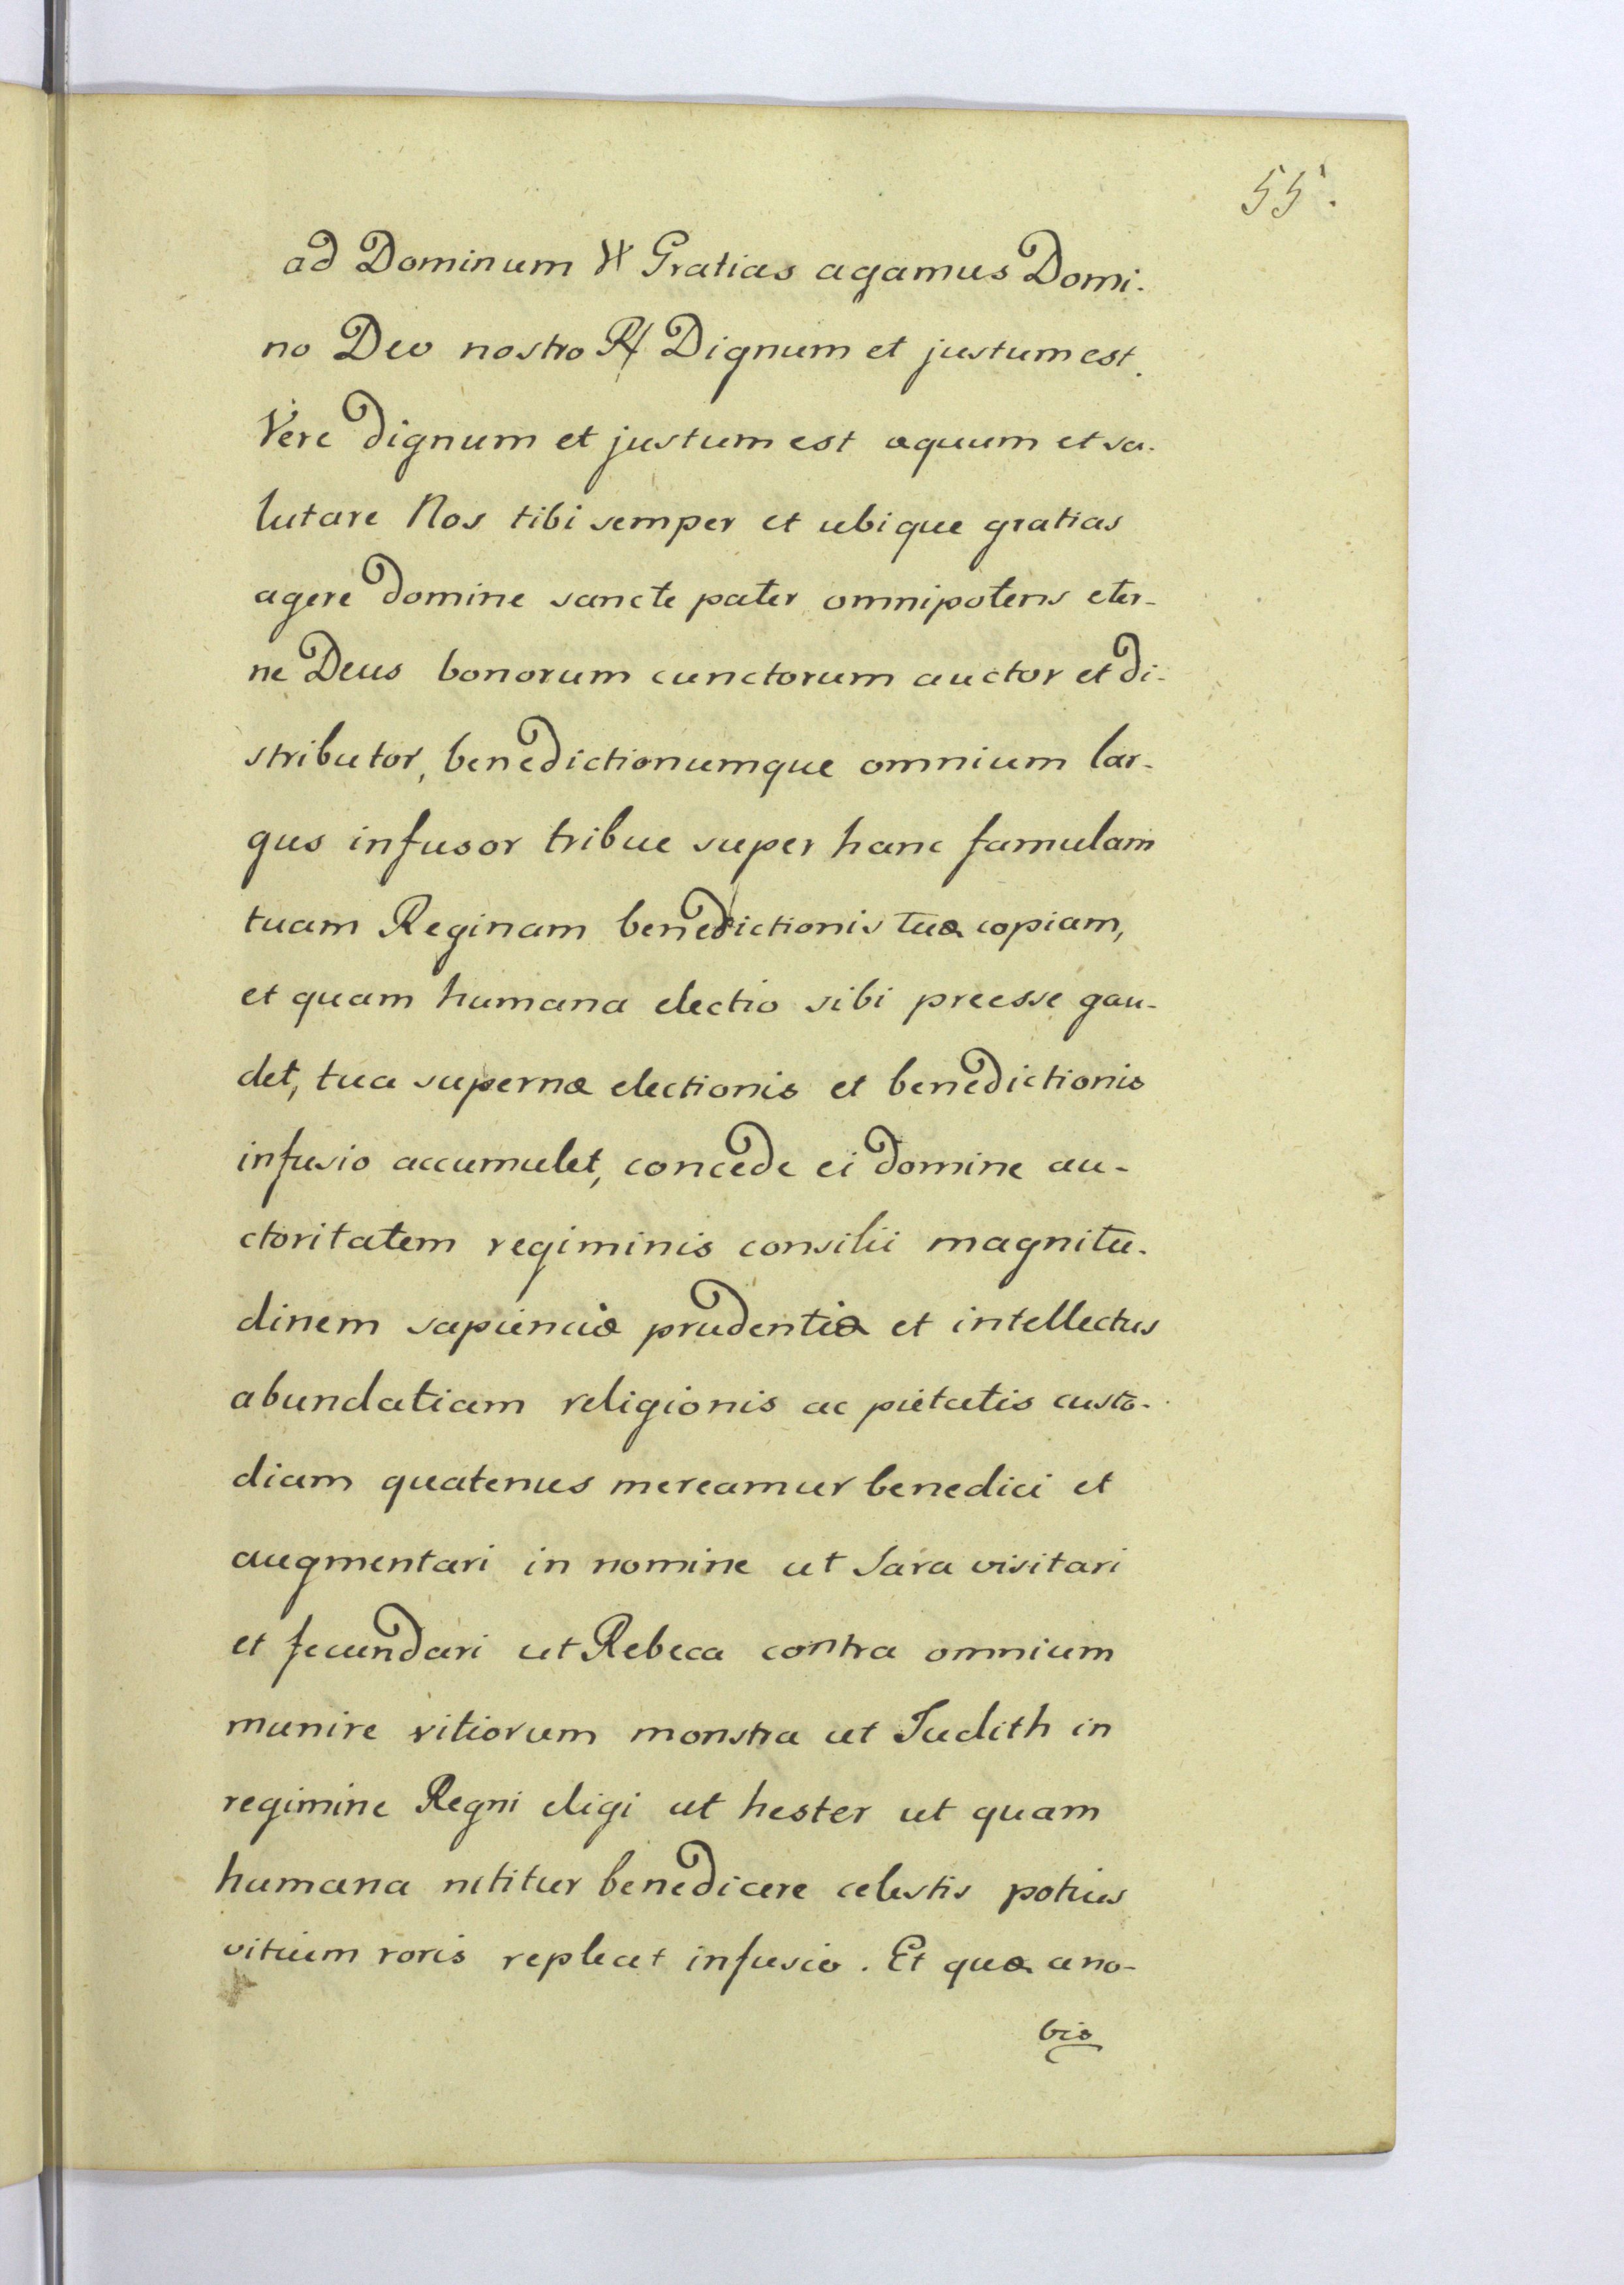 55.
ad Dominum ℣ Gratias agamus Domi-
no Deo nostro ℟ Dignum et justum est.
Vere dignum et justum est æquum et sa-
lutare Nos tibi semper et ubique gratias
agere domine sancte pater omnipotens eter-
ne Deus bonorum cunctorum auctor et di-
stributor, benedictionumque omnium lar-
gus infusor tribue super hanc famulam
tuam Reginam benedictionis tuæ copiam,
et quam humana electio sibi preesse gau-
det, tua supernæ electionis et benedictionis
infusio accumulet, concede ei domine au-
ctoritatem regiminis consilii magnitu-
dinem sapienciæ prudentiæ et intellectus
abundatiam religionis ac pietatis custo-
diam quatenus mereamur benedici et
augmentari in nomine ut Sara visitari
et fecundari ut Rebeca contra omnium
munire vitiorum monstra ut Judith in
regimine Regni eligi ut hester ut quam
humana nititur benedicere celestis potius
vitium roris repleat infusio. Et quæ ano-
bis